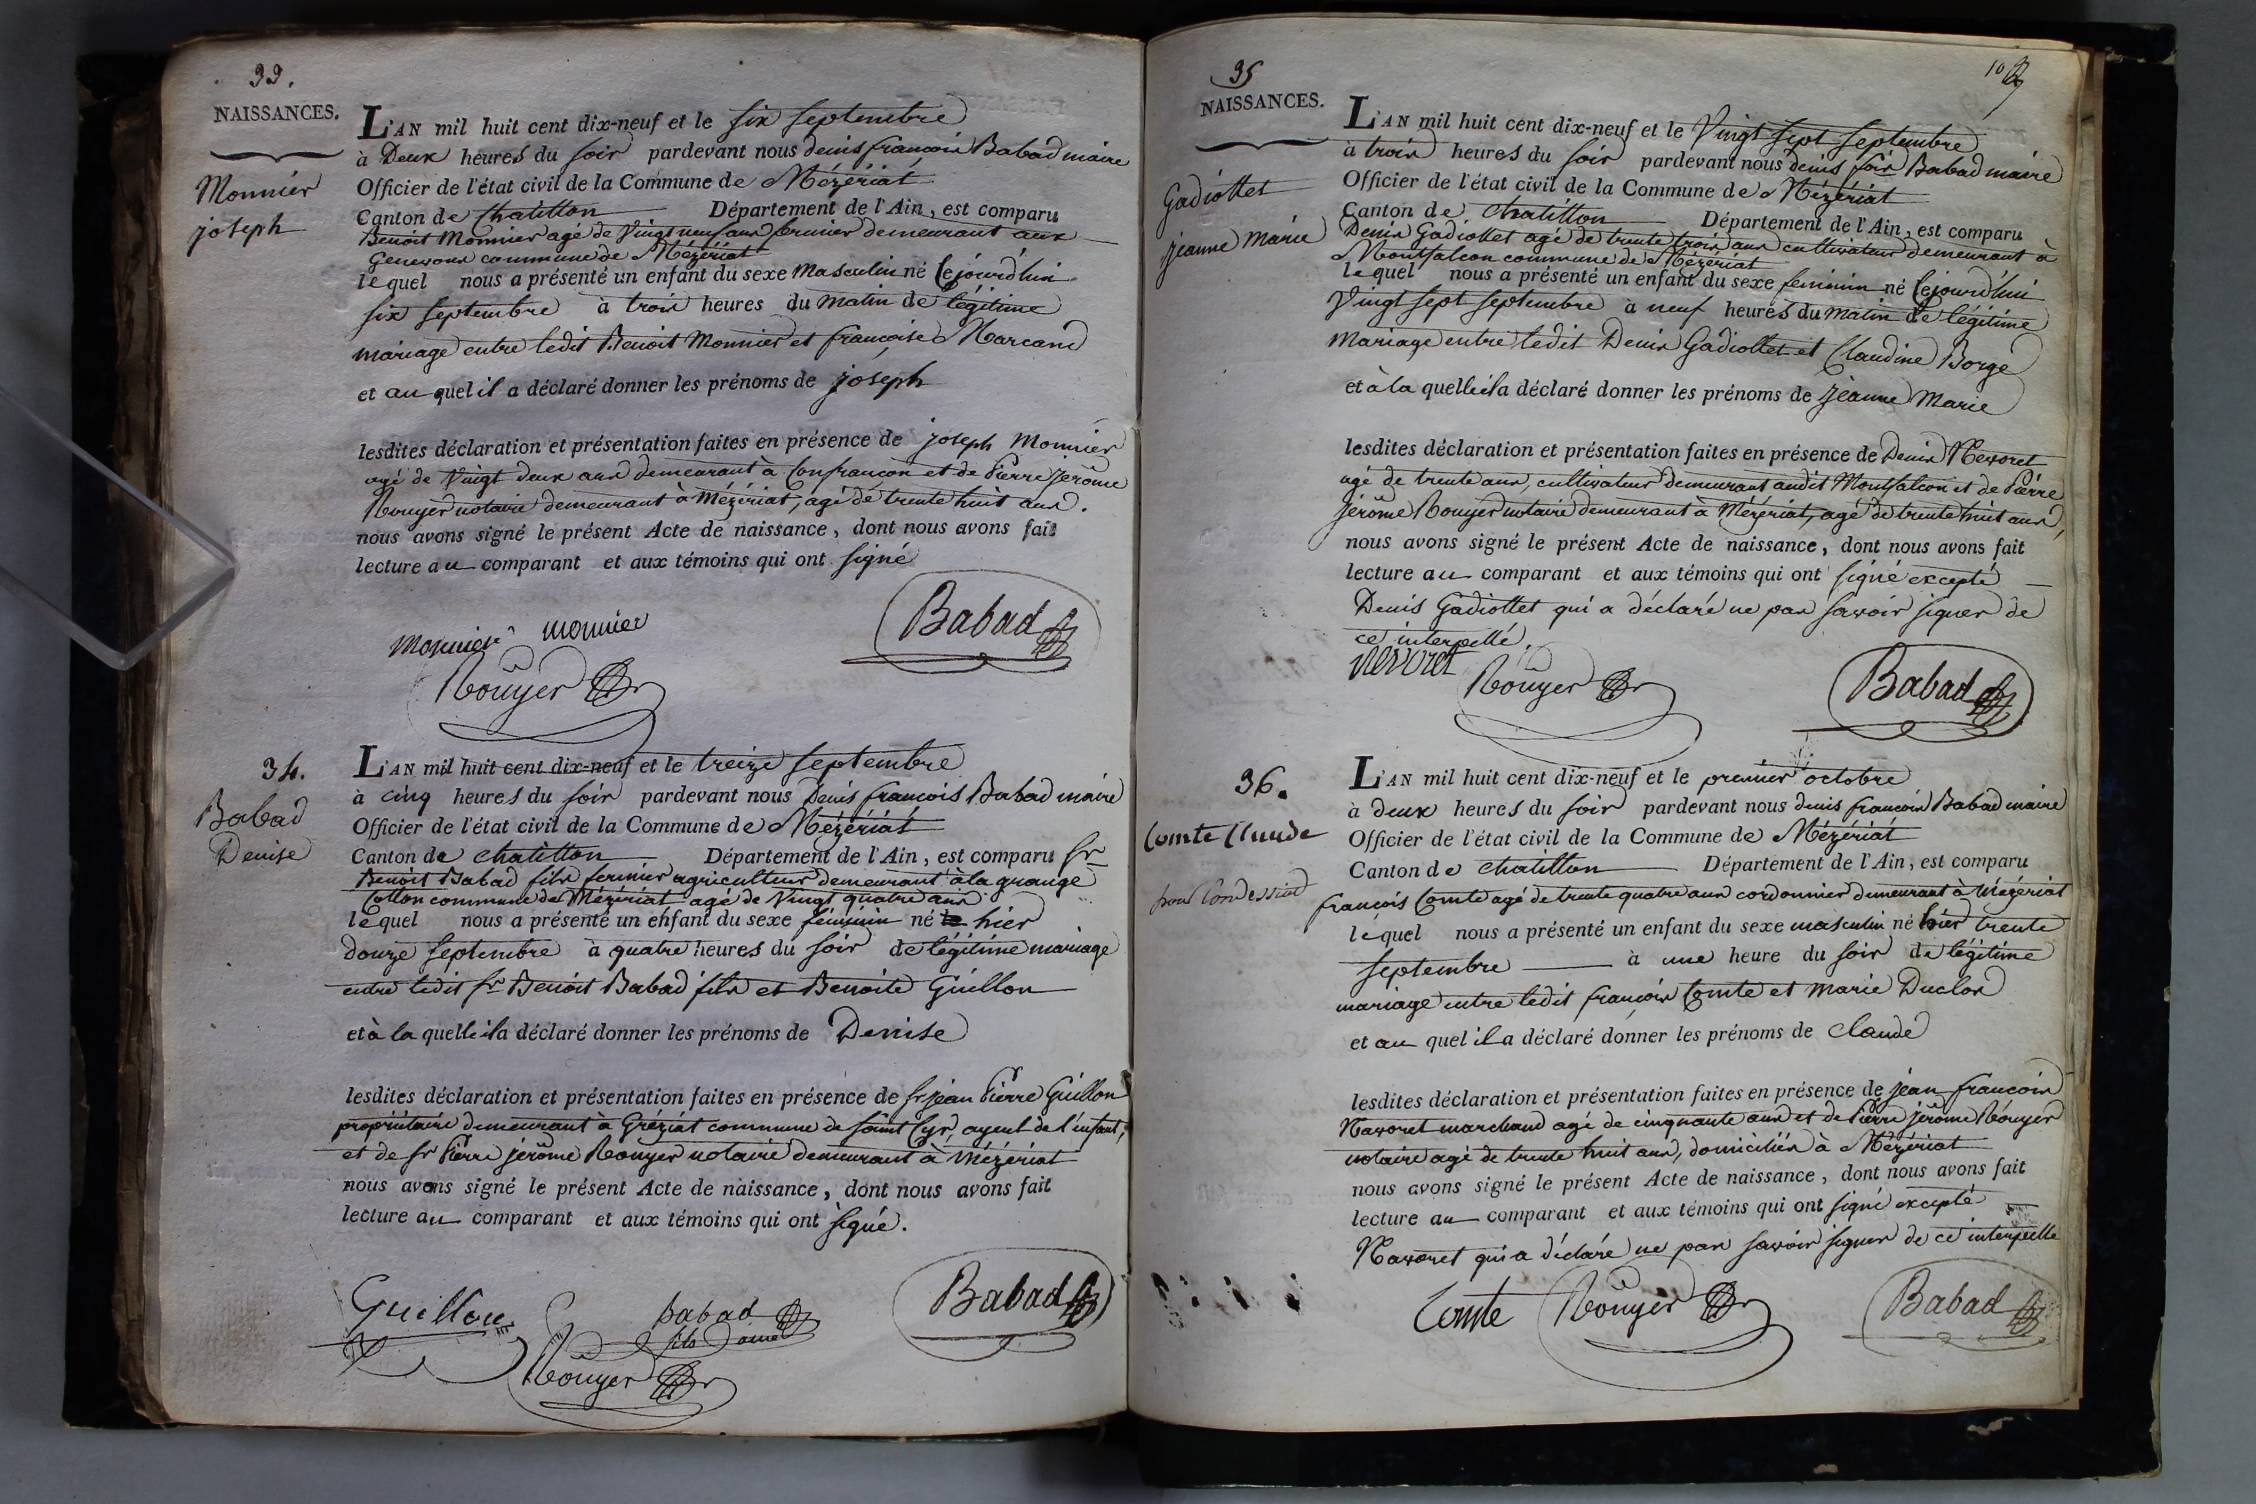 33.
NAISSANCES.
Monnier
joseph
L'AN mil huit cent dix-neuf et le six septembre
à Deux heures du soir pardevant nous denis françois Babad maire
Officier de l'état civil de la Commune de Mézériat
Canton de chatillon Département de l'Ain, est comparu
Benoit Monnier agé de Vingt neuf ans fermier demeurant aux
commune de Mézériat
lequel nous a présenté un enfant du sexe masculin né cejourd'hui
six septembre à trois heures du matin de légitime
mariage entre ledit Benoit Monnier et françoise Marcand
et au quel il a déclaré donner les prénoms de joseph
lesdites déclaration et présentation faites en présence de joseph Monnier
agé de Vingt deux ans demeurant à Confrançon et de Pierre jérôme
Rouyer notaire demeurant à Mézériat, agé de trente huit ans.
nous avons signé le présent Acte de naissance, dont nous avons fait
lecture au comparant et aux témoins qui ont signé
monnier monnier
Babad
Rouyer
34.
Babad
Denise
L'AN mil huit cent dix-neuf et le treize septembre
à cinq heures du soir pardevant nous Denis françois Babad maire
Officier de l'état civil de la Commune de Mézériat
Canton de chatillon Département de l'Ain, est comparu sr
Benoit Babad fils fermier agriculteur demeurant à la grange
Collon commune de Mézériat agé de Vingt quatre ans
lequel nous a présenté un enfant du sexe féminin né hier
douze septembre à quatre heures du soir de légitime mariage
entre ledit sr Benoit Babad fils et Benoite Guillon
et à la quelle il a déclaré donner les prénoms de Denise
lesdites déclaration et présentation faites en présence de sr jean Pierre Guillon
propriétaire demeurant à Gréziat commune de saint Cyr, ayeul de l'enfant,
et de sr Pierre jérôme Rouyer notaire demeurant à Mézériat
nous avons signé le présent Acte de naissance, dont nous avons fait
lecture au comparant et aux témoins qui ont signé.
Guillon
babad
fils ainé
Babad
Rouyer
35
NAISSANCES.
Gadiollet
jeanne Marie
L'AN mil huit cent dix-neuf et le Vingt sept septembre
à trois heures du soir pardevant nous denis fois Babad maire
Officier de l'état civil de la Commune de Mézériat
Canton de chatillon Département de l'Ain, est comparu
Denis Gadiollet agé de trente trois ans cultivateur demeurant à
Montfalcon commune de Mézériat
lequel nous a présenté un enfant du sexe féminin né cejourd'hui
Vingt sept septembre à neuf heures du matin de légitime
mariage entre ledit Denis Gadiollet et Claudine Borge
et à la quelle il a déclaré donner les prénoms de jeanne Marie
lesdites déclaration et présentation faites en présence de Denis Nevoret
agé de trente ans, cultivateur demeurant audit Montfalcon et de Pierre
jérôme Rouyer notaire demeurant à Mézériat, agé de trente huit ans,
nous avons signé le présent Acte de naissance, dont nous avons fait
lecture au comparant et aux témoins qui ont signé excepté
Denis Gadiollet qui a déclaré ne pas savoir signer de
ce interpellé.
Nevoret
Rouyer
Babad
36.
Comte Claude
L'AN mil huit cent dix-neuf et le premier octobre
à deux heures du soir pardevant nous denis françois Babad maire
Officier de l'état civil de la Commune de Mézériat
Canton de chatillon Département de l'Ain, est comparu
françois Comte agé de trente quatre ans cordonnier demeurant à Mézériat
lequel nous a présenté un enfant du sexe masculin né hier trente
septembre à une heure du soir de légitime
mariage entre ledit françois Comte et Marie Duclos
et au quel il a déclaré donner les prénoms de claude
lesdites déclaration et présentation faites en présence de jean françois
Navoret marchand agé de cinquante ans et de Pierre jérôme Rouyer
notaire agé de trente huit ans, domiciliés à Mézériat
nous avons signé le présent Acte de naissance, dont nous avons fait
lecture au comparant et aux témoins qui ont signé excepté
Navoret qui a déclaré ne pas savoir signer de ce interpellé
Comte
Rouyer
Babad